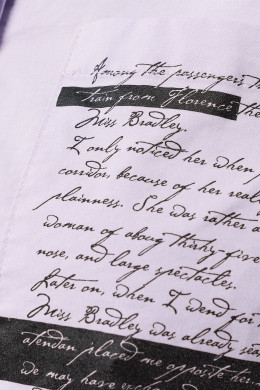 Among the passengers
train from Florence the
Miss Bradley.
I only noticed her when
corridor, because of her
plainness. She was rather a
woman of aboug thirhy-five
nose, and large spectacles.
Later on, when I wend for
Miss Bradley was already
atendan placed me opposite
we may have